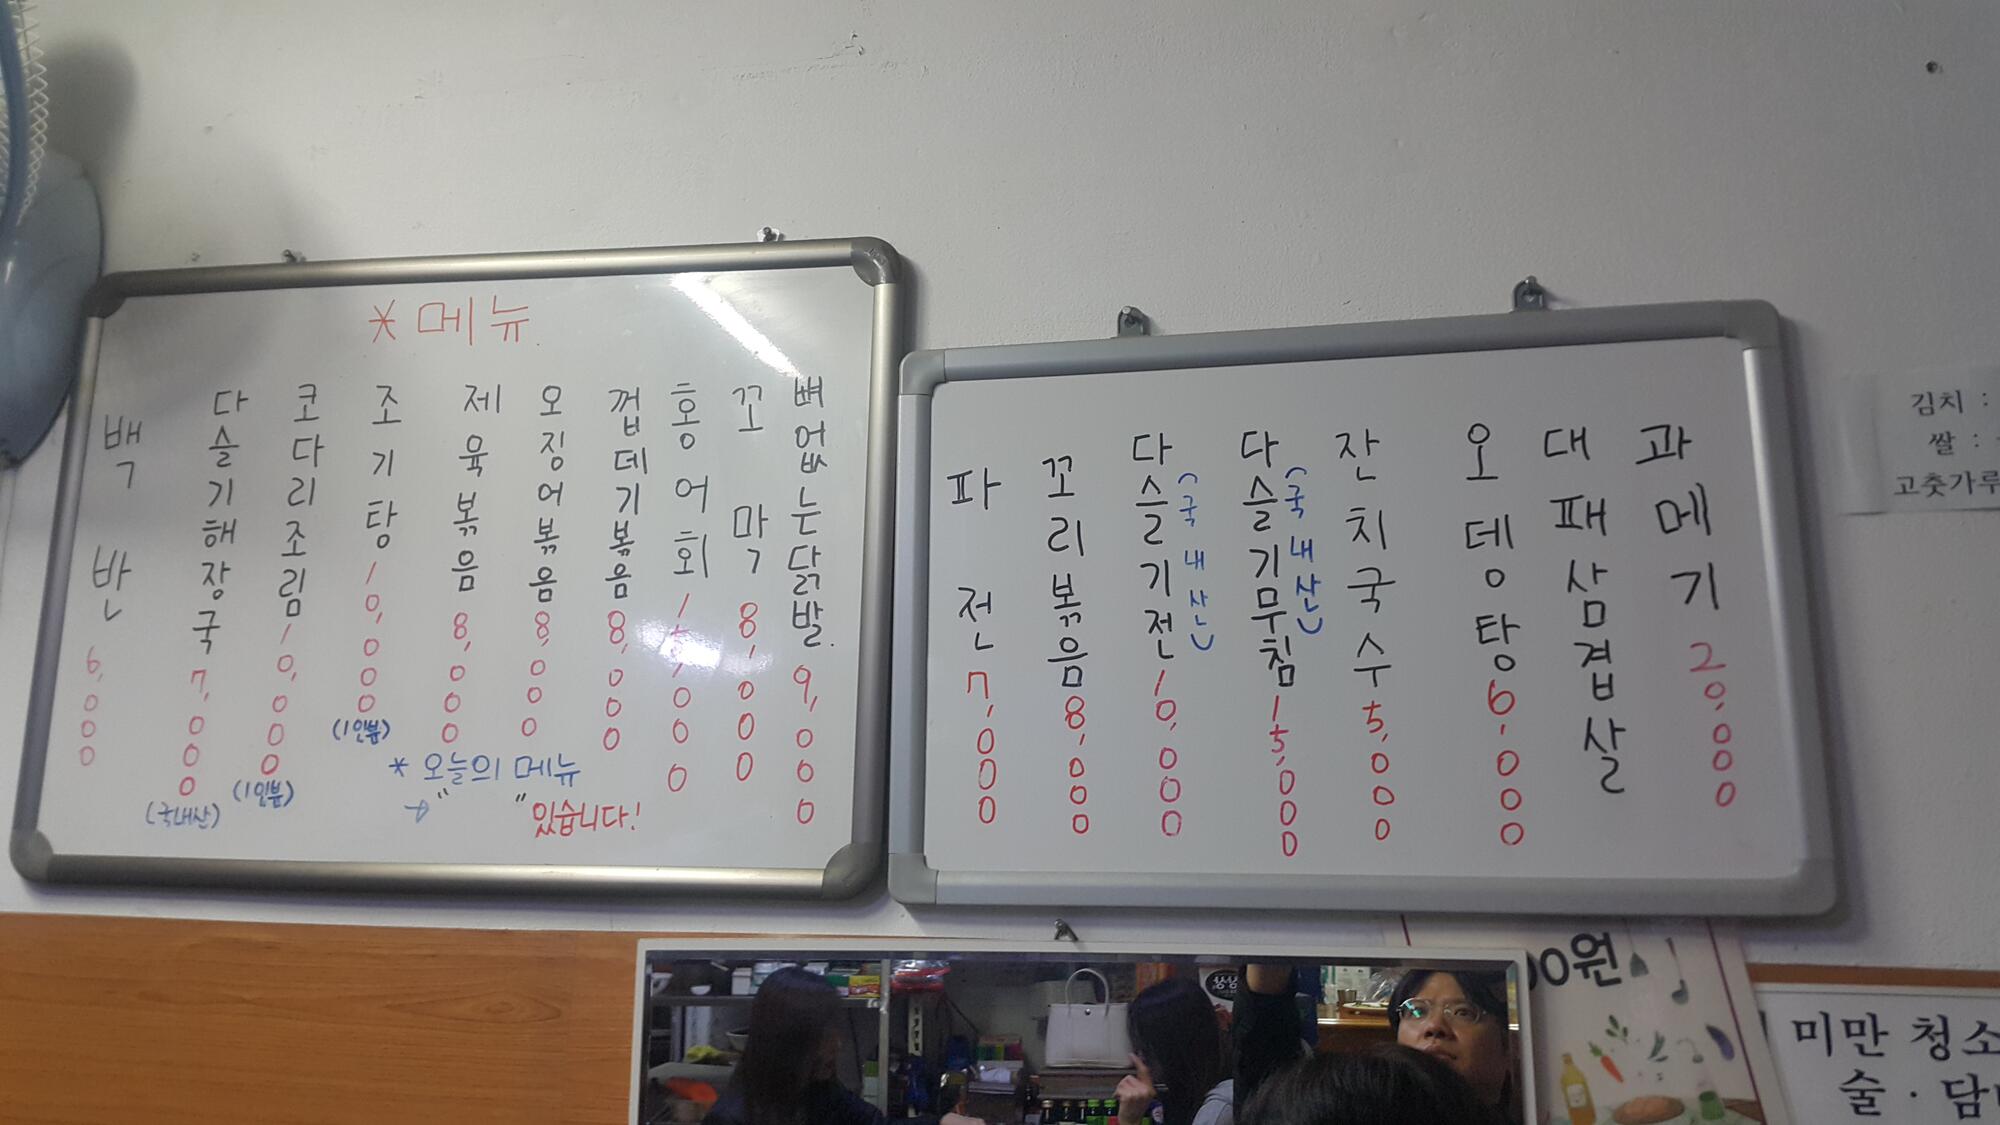 * 메뉴
백반 6,000
다슬기해장국 7,000
(국내산)
코다리조림 10,000
(1인분)
조기탕 10,000
(1인분)
제육볶음 8,000
오징어볶음 8,000
껍데기볶음 8,000
홍어회 15,000
꼬막 8,000
뼈없는닭발. 9,000
* 오늘의 메뉴
→ " " 있습니다!
파전 7,000
꼬리볶음 8,000
다슬기전 10,000
(국내산)
다슬기무침 15,000
(국내산)
잔치국수 5,000
오뎅탕 6,000
대패삼겹살
과메기 20,000
김치 :
쌀 :
고춧가루
00원
미만 청소
술 · 담